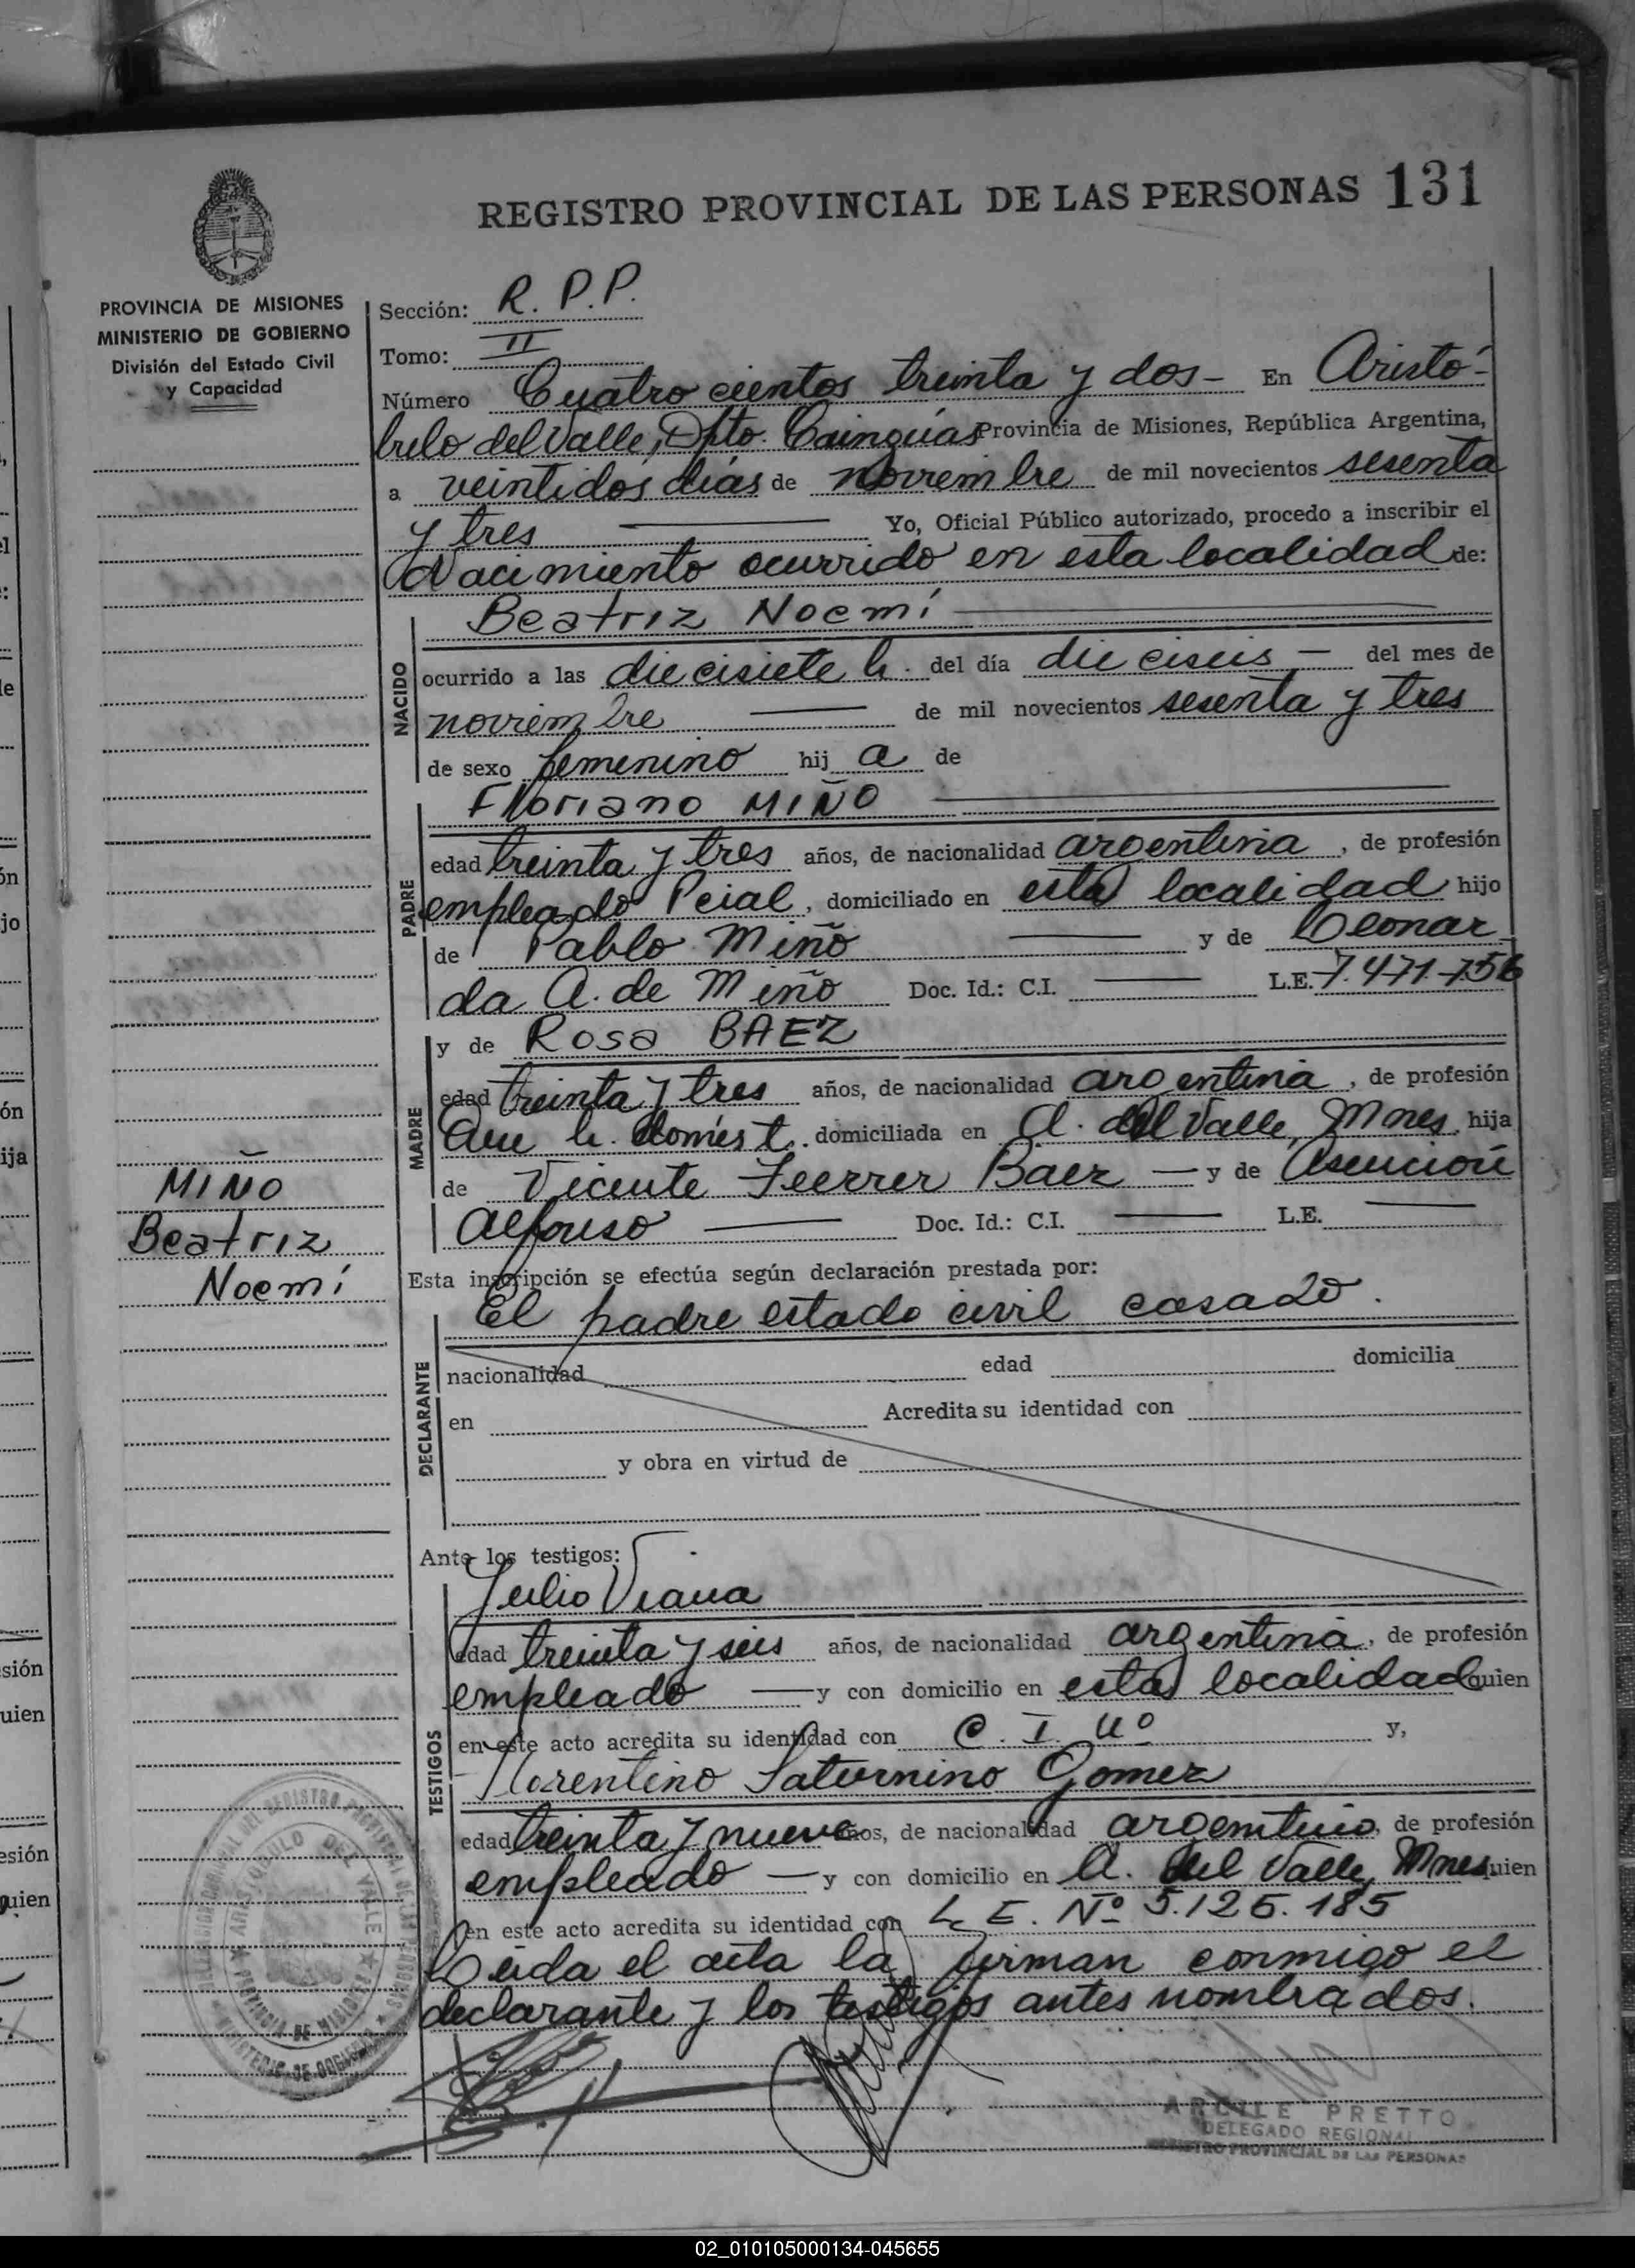 REGISTRO PROVINCIAL DE LAS PERSONAS 131
PROVINCIA DE MISIONES
MINISTERIO DE GOBIERNO
División del Estado Civil
y Capacidad
Sección: R. P. P.
Tomo: II
Número Cuatro cientos treinta y dos - En Aristó-
bulo del Valle, Dpto. Cainguás Provincia de Misiones, República Argentina,
a veintidos días de noviembre de mil novecientos sesenta
y tres Yo, Oficial Público autorizado, procedo a inscribir el
Nacimiento ocurrido en esta localidad de:
NACIDO
Beatriz Noemí
ocurrido a las diecisiete h. del día dieciseis - del mes de
noviembre de mil novecientos sesenta y tres
de sexo femenino hij a de
PADRE
Floriano MIÑO
edad treinta y tres años, de nacionalidad argentina, de profesión
empleado Pcial, domiciliado en esta localidad hijo
de Pablo Miño y de Leonar
da A. de Miño Doc. Id.: C.I. L.E. 7.471.756
MADRE
y de Rosa BAEZ
edad treinta y tres años, de nacionalidad argentina, de profesión
Que h. domést. domiciliada en A. del Valle, Mnes, hija
de Vicente Ferrer Baez - y de Asención
Alfonso Doc. Id.: C.I. L.E.
MIÑO
Beatriz
Noemí
Esta inscripción se efectúa según declaración prestada por:
DECLARANTE
El padre estado civil casado.
nacionalidad edad domicilia
en Acredita su identidad con
y obra en virtud de
Ante los testigos:
TESTIGOS
Julio Viana
edad treinta y seis años, de nacionalidad argentina, de profesión
empleado y con domicilio en esta localidad quien
en este acto acredita su identidad con C. I. Nº y,
Florentino Saturnino Gomez
edad treinta y nueve años, de nacionalidad argentino, de profesión
empleado - y con domicilio en A. del Valle, Mnes quien
en este acto acredita su identidad con L. E. Nº 5.126.185
Leida el acta la firman conmigo el
declarante y los testigos antes nombrados.
ARISTOBULO DEL VALLE
PROVINCIA DE MISIONES
PRETTO
DELEGADO REGIONAL
REGISTRO PROVINCIAL DE LAS PERSONAS
02_010105000134-045655